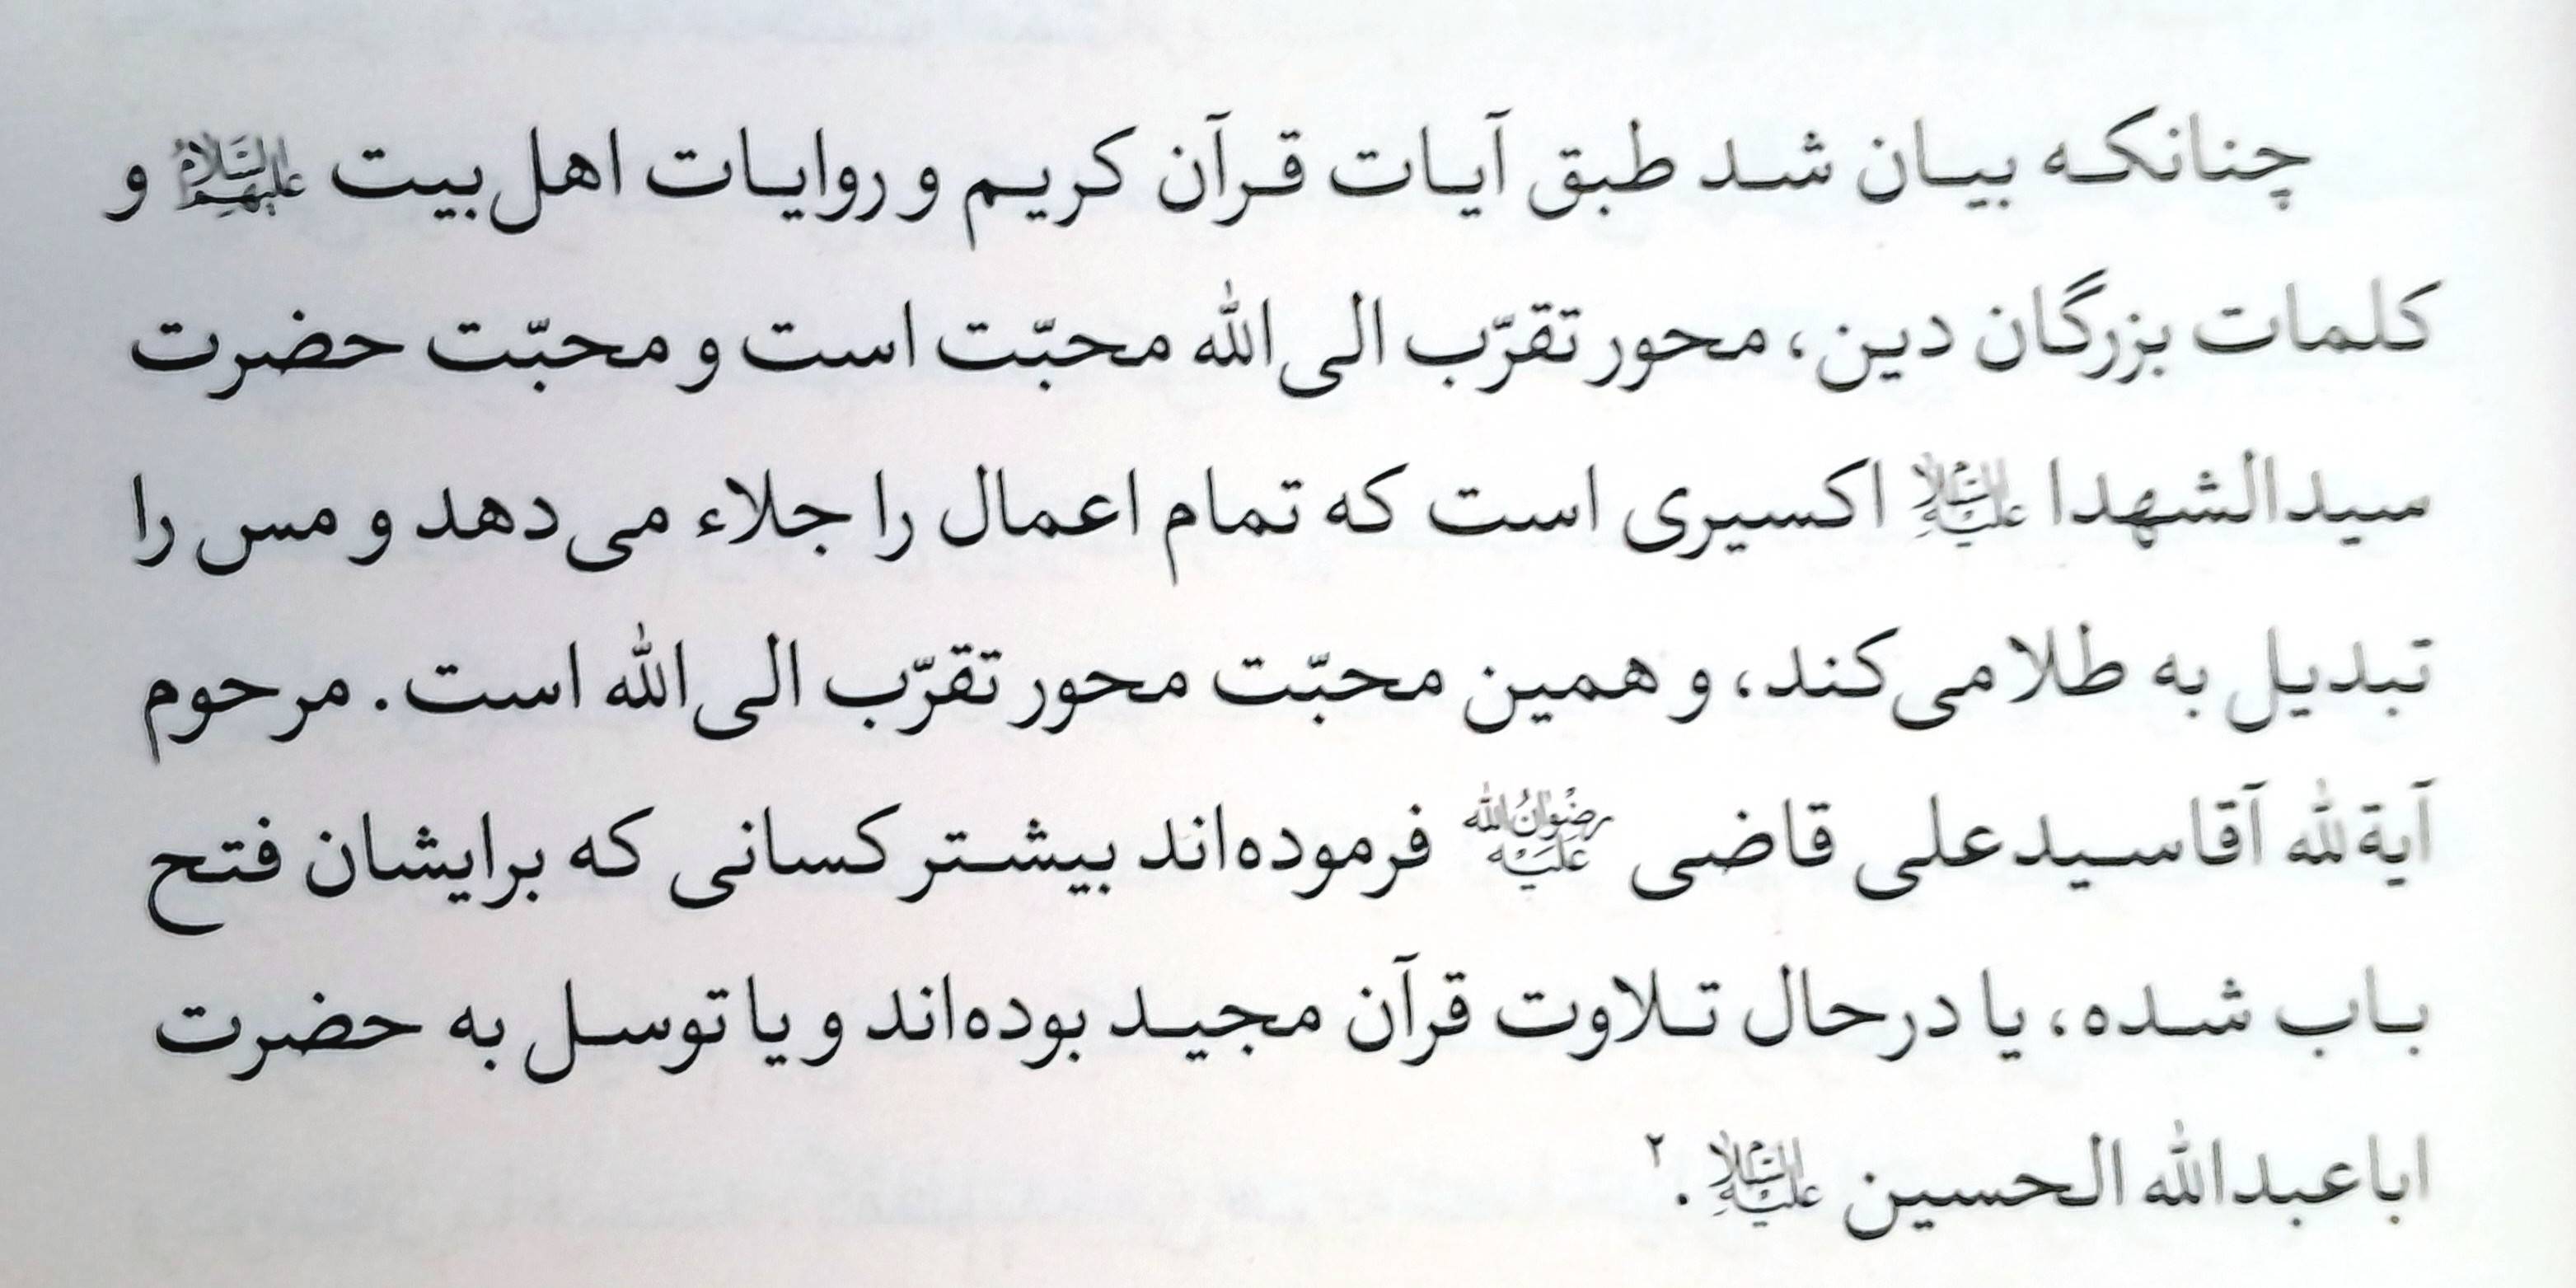 چنانکه بیان شد طبق آیات قرآن کریم و روایات اهل‌بیت علیهم‌السلام و
کلمات بزرگان دین، محور تقرّب الی‌الله محبّت است و محبّت حضرت
سیدالشهدا علیه‌السلام اکسیری است که تمام اعمال را جلاء می‌دهد و مس را
تبدیل به طلا می‌کند، و همین محبّت محور تقرّب الی‌الله است. مرحوم
آیةلله آقاسیدعلی قاضی رضوان‌الله علیه فرموده‌اند بیشتر کسانی که برایشان فتح
باب شده، یا درحال تلاوت قرآن مجید بوده‌اند و یا توسل به حضرت
اباعبدالله الحسین علیه‌السلام .۲